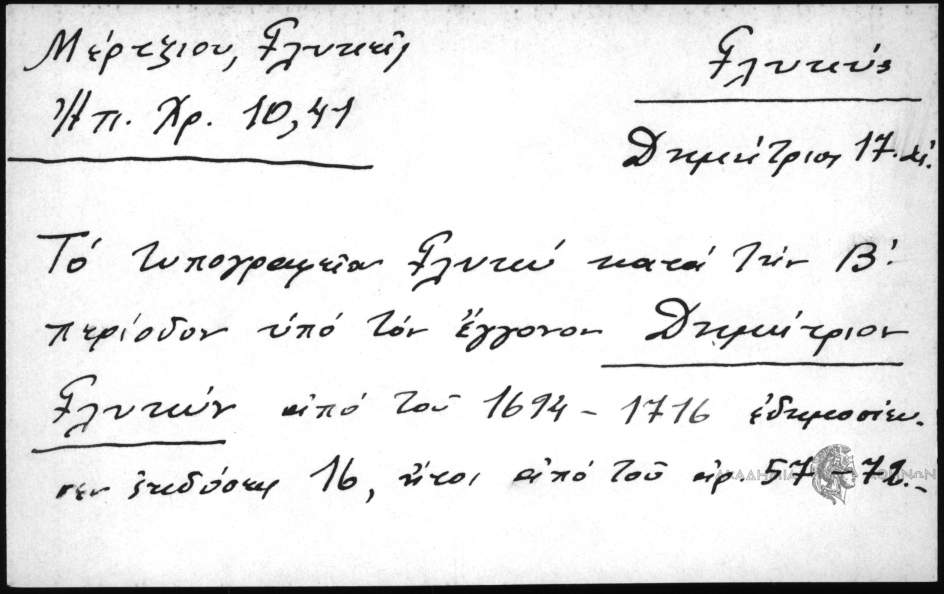 Μέρτζιου, Γλυκεῖς
Ἠπ. Χρ. 10,41
Γλυκύς
Δημήτριος 17. αἰ.
Τό τυπογραφεῖον Γλυκύ κατά τήν Β΄.
περίοδον ὑπό τόν ἔγγονον Δημήτριον
Γλυκύν ἀπό τοῦ 1694 - 1716 ἐδημοσίευ-
σεν ἐκδόσεις 16, ἤτοι ἀπό τοῦ ἀρ. 57 - 72.-
ΑΚΑΔΗΜΙΑ ΑΘΗΝΩΝ